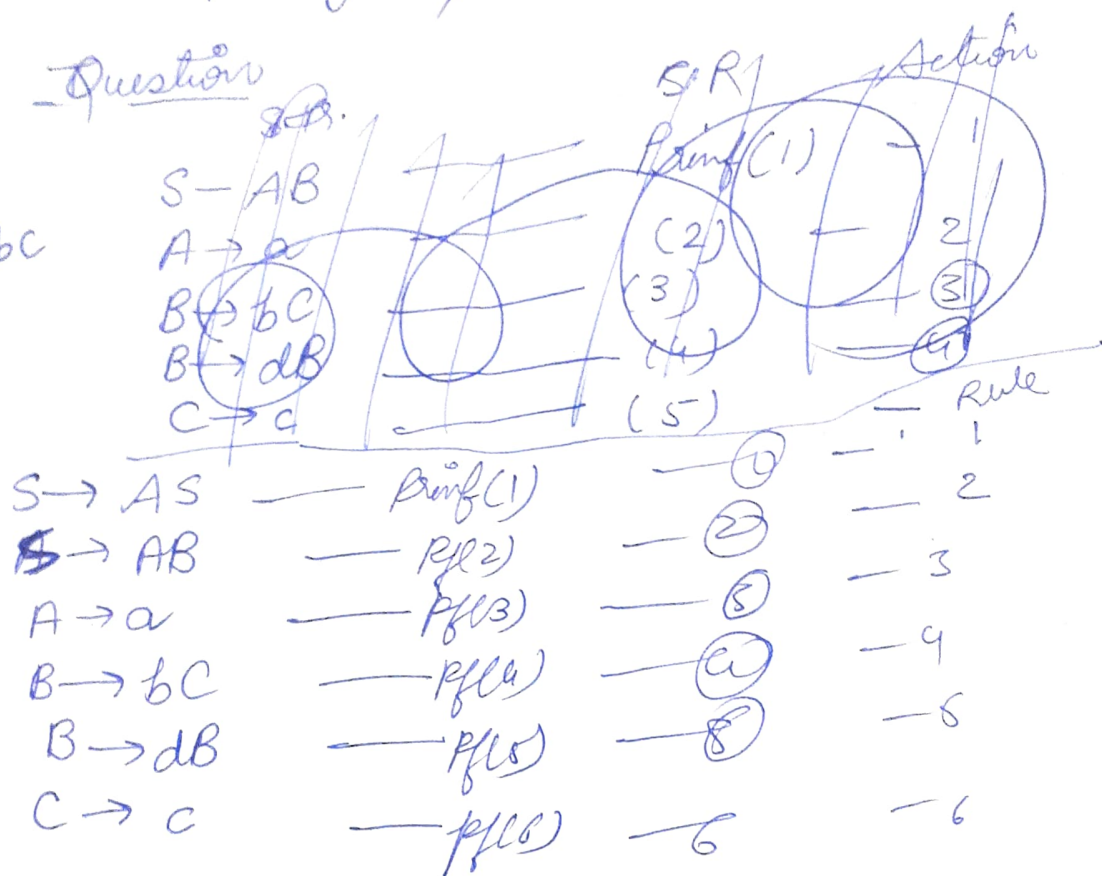 Question
S.R.
S R Action
S - AB Printf(1) - 1
A → a (2) - 2
bC
B → bC (3) - 3
B → dB (4) - 4
C → c (5)
- Rule
S → AS - Prinf(1) - 1 - 1
S → AB - Pf(2) - 2 - 2
A → a - Pf(3) - 3 - 3
B → bC - Pf(4) - 4 - 4
B → dB - Pf(5) - 5 - 5
C → c - Pf(6) - 6 - 6